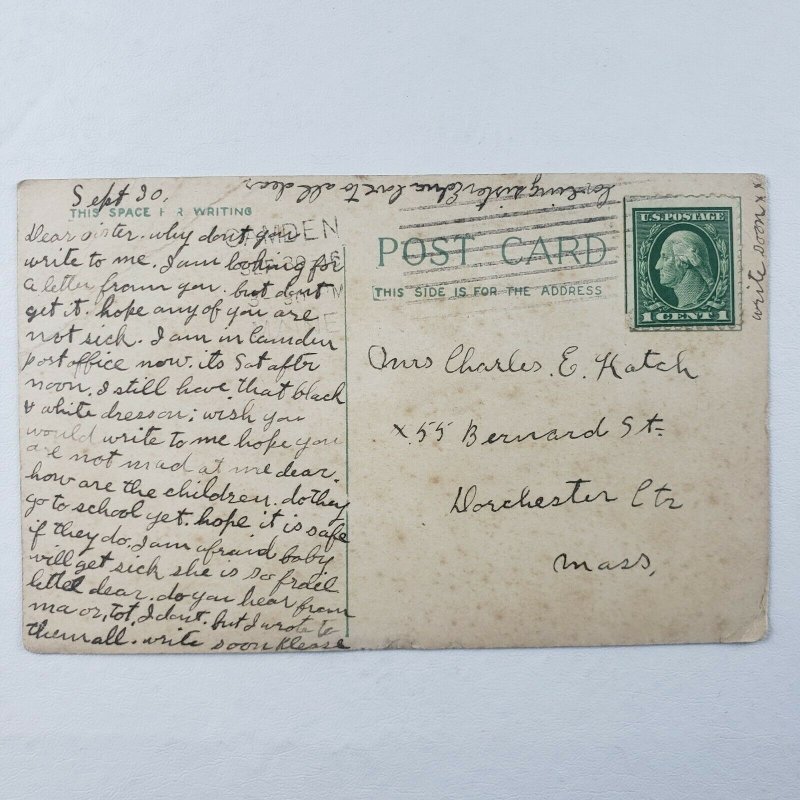 Sept 30,
THIS SPACE F R WRITING
Dear sister. why don't you
write to me. I am looking for
a letter from you. but dont
get it. hope any of you are
not sick. I am in Camden
post office now. its Sat after
noon. I still have that black
& white dress on; wish you
would write to me hope you
are not mad at me dear.
how are the children. do they
go to school yet. hope it is safe
if they do. I am afraid baby
will get sick she is so frail
little dear. do you hear from
ma or, Tot, I dont. but I wrote to
them all. write soon Please
loving sister Edna love to all dear
CAMDEN
POST CARD
THIS SIDE IS FOR THE ADDRESS
U.S. POSTAGE
1 CENT 1
write soon x x
Mrs Charles. E. Hatch
x 55 Bernard St.
Dorchester Ctr
Mass,